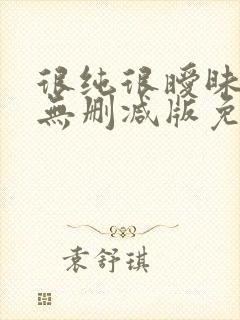 很纯很暧昧
無删减版免
袁舒琪